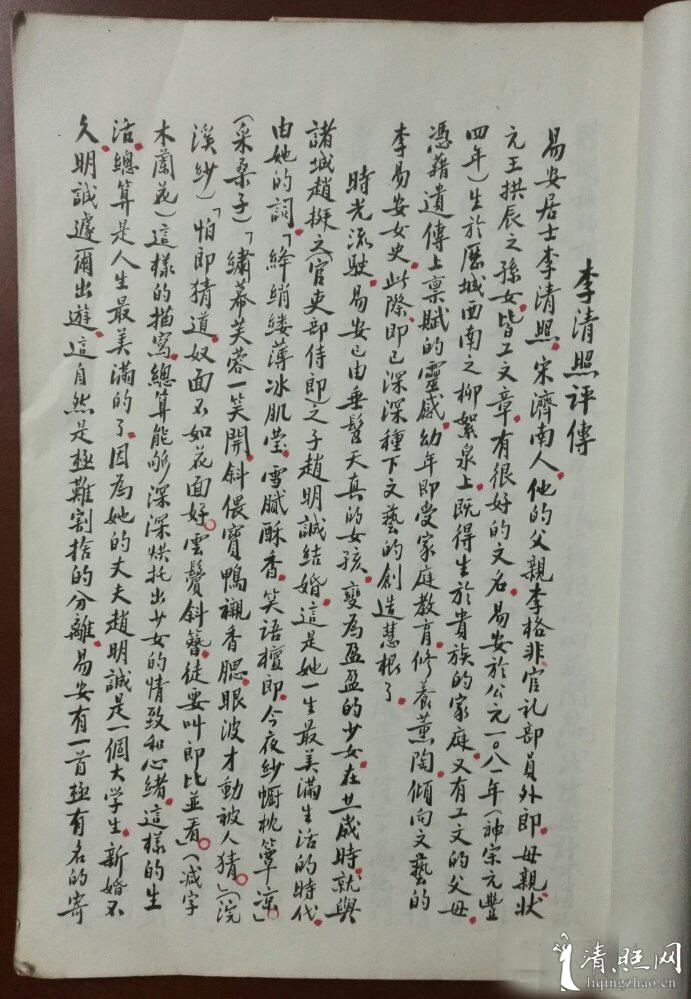 李清照評傳
易安居士李清照，宋濟南人，他的父親李格非官礼部員外郎，母親狀
元王拱辰之孫女，皆工文章，有很好的文名，易安於公元一〇八一年（神宗元豐
四年）生於歷城西南之柳絮泉上，既得生於貴族的家庭，又有工文的父母，
憑藉遺傳上稟賦的靈感，幼年即受家庭教育，修養薰陶，傾向文藝的
李易安女史，此際即已深深種下文藝的創造慧根了，
時光流駛，易安已由垂髫天真的女孩，變為盈盈的少女，在廿一歲時，就與
諸城趙挺之（官吏部侍郎）之子趙明誠結婚，這是她一生最美滿生活的時代，
由她的詞，「絳綃縷薄冰肌瑩，雪膩酥香，笑語檀郎，今夜紗幮枕簟涼。」
（采桑子）「繡幕芙蓉一笑開，斜偎寶鴨襯香腮，眼波才動被人猜。」（浣
溪紗）「怕郎猜道，奴面不如花面好。雲鬢斜簪，徒要叫郎比並看。」（減字
木蘭花）這樣的描寫，總算能够深深烘托出少女的情致和心緒，這樣的生
活，總算是人生最美滿的了，因為她的丈夫趙明誠是一個大学生，新婚不
久，明誠遽爾出遊，這自然是極難割捨的分離，易安有一首極有名的寄
清照网
liqingzhao.cn